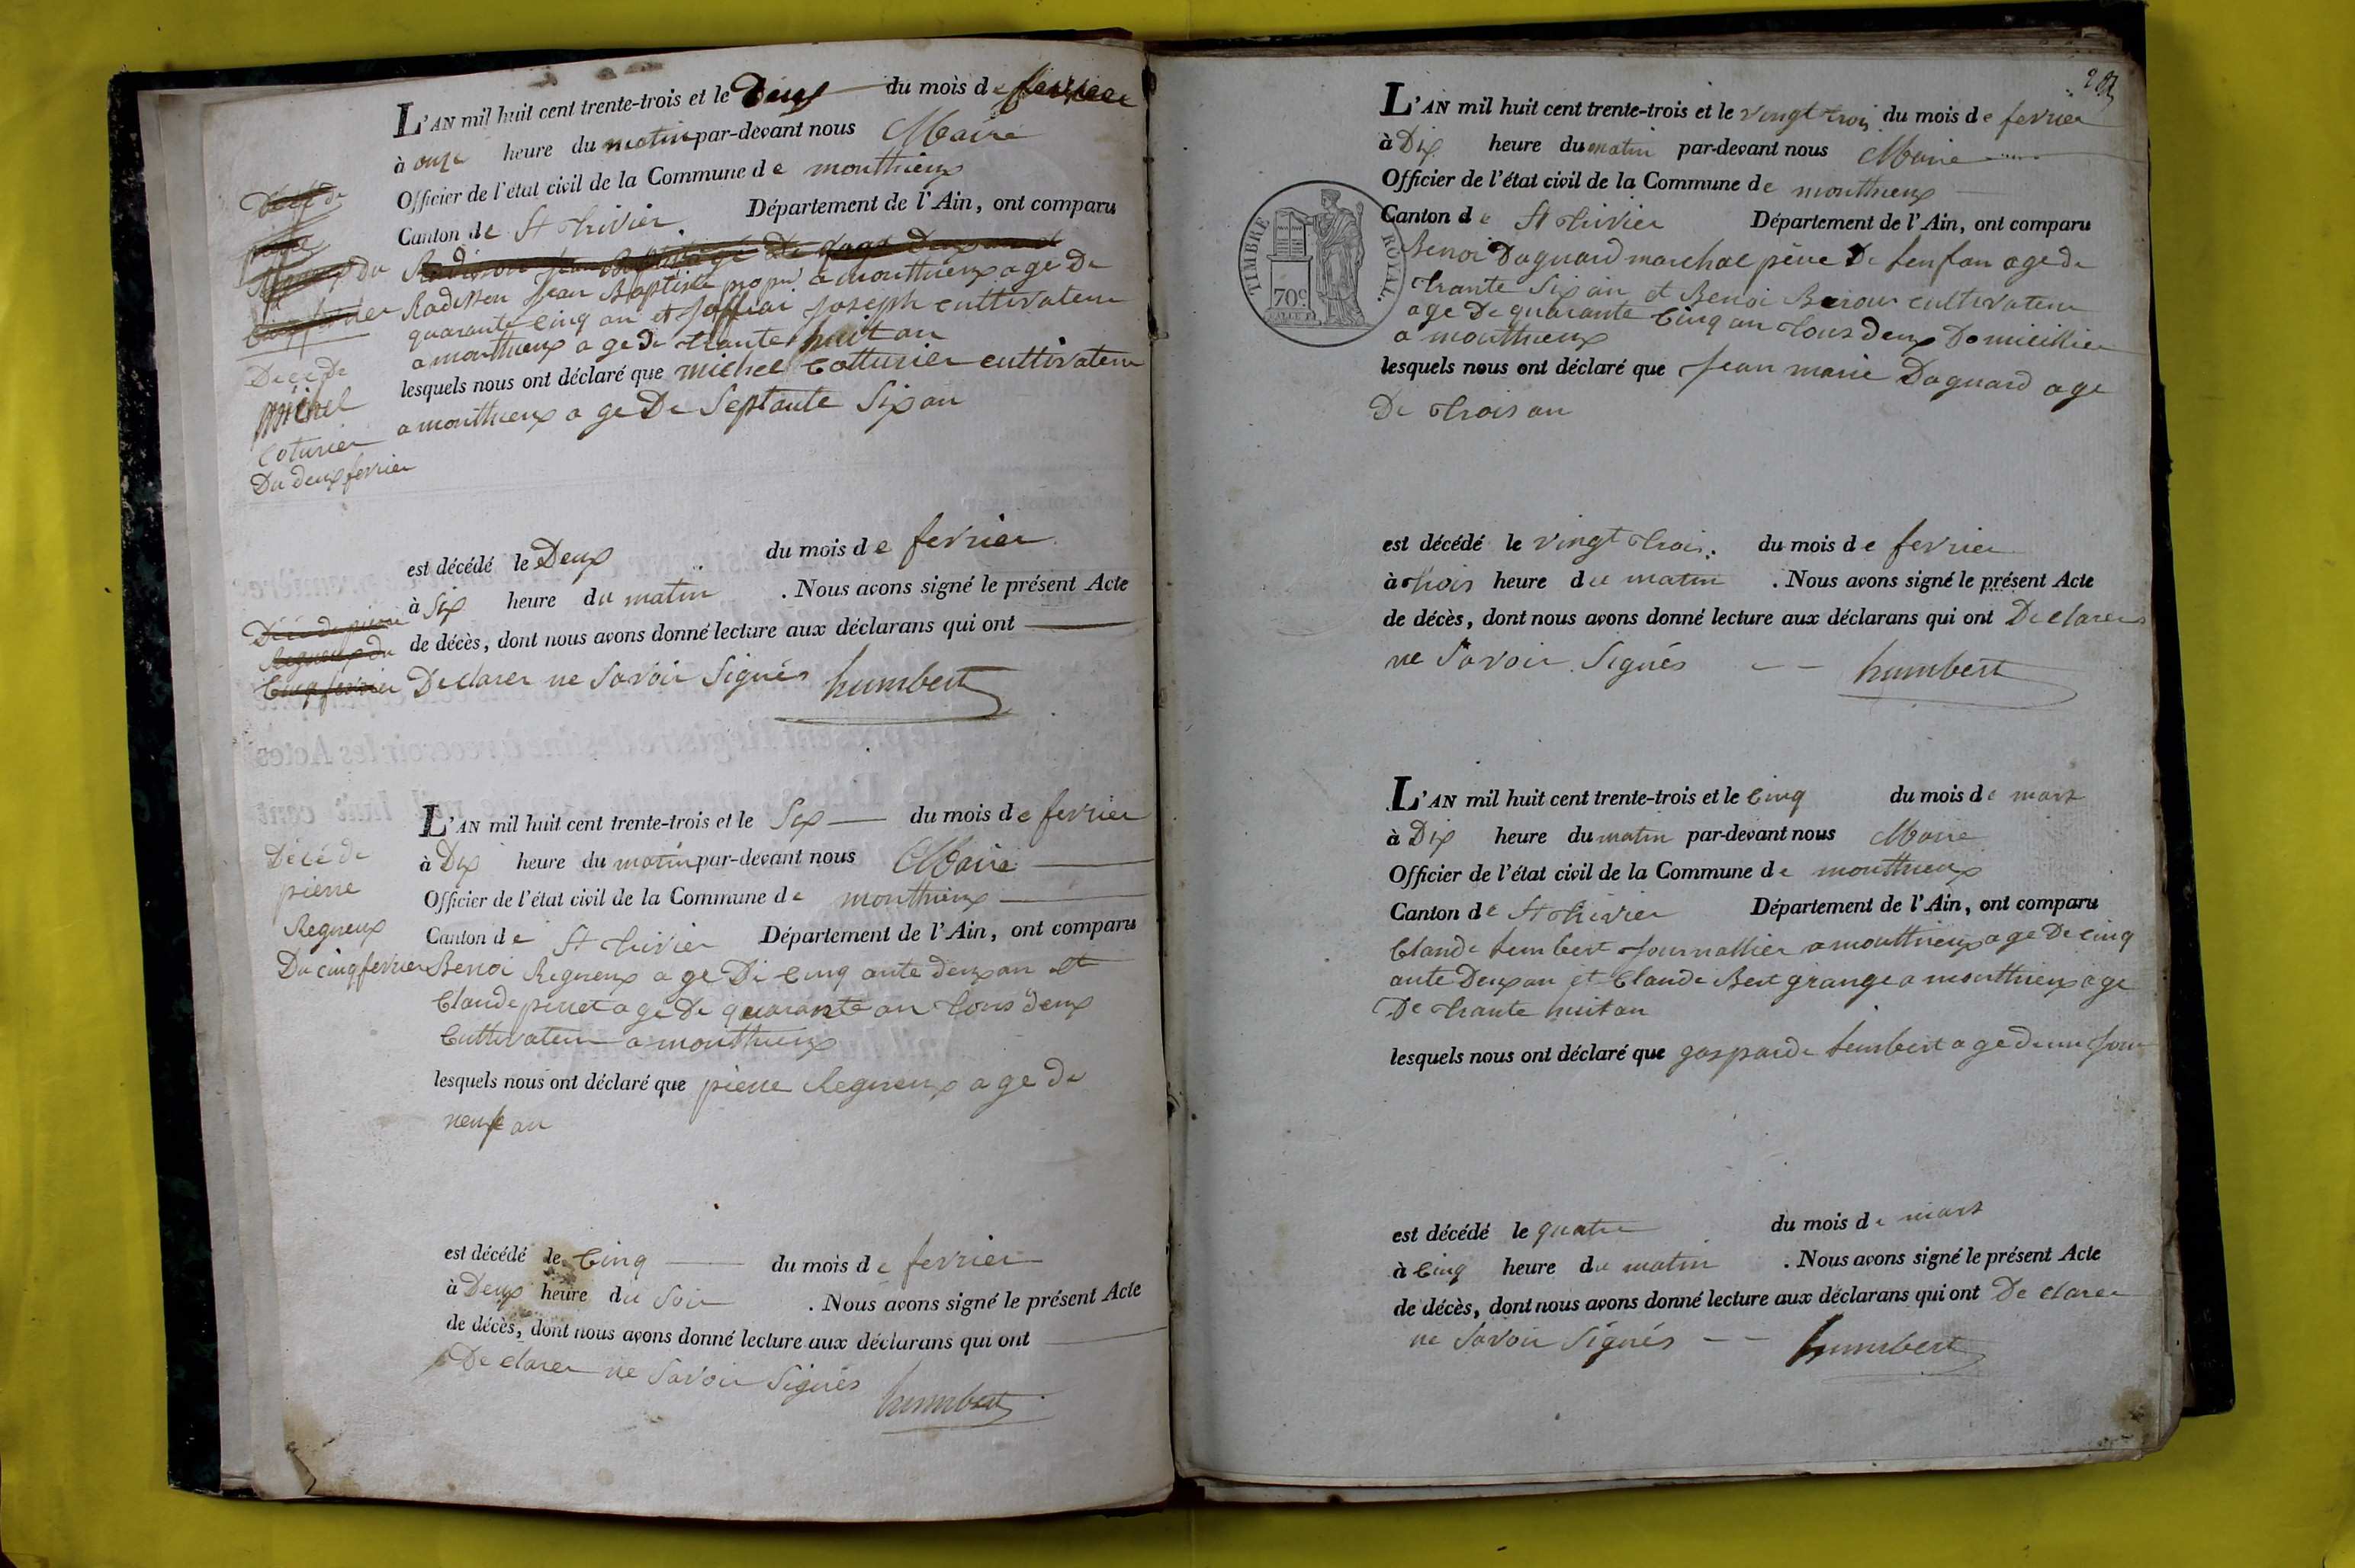 L'AN mil huit cent trente-trois et le Deux du mois de fevrier
à onze heure du matin par-devant nous Maire
Officier de l'état civil de la Commune de monthieux
Canton de St trivier Département de l'Ain, ont comparu
Radisson Jean Baptiste propri a monthieux age De
quarante Cinq an et Joseph cultivateur
a monthieux age De trante huit an
lesquels nous ont déclaré que michel Cotturier cultivateur
a monthieux age De Septante Six an
Décé De
michel
Coturier
Du deux fevrier
est décédé le Deux du mois de fevrier
à Six heure du matin . Nous avons signé le présent Acte
de décès, dont nous avons donné lecture aux déclarans qui ont
Declarer ne Savoir Signés humbert
Décé de pierre
Regneux du
Cinq fevrier
L'AN mil huit cent trente-trois et le Six du mois de fevrier
à Dix heure du matin par-devant nous Maire
Officier de l'état civil de la Commune de monthieux
Canton de St trivier Département de l'Ain, ont comparu
Benoi Regneux age De Cinq ante deux an et
Claude perret age De quarante an tous deux
Cultivateur a monthieux
lesquels nous ont déclaré que pierre Regneux age De
neuf an
Décé de
pierre
Regneux
Du cinq fevrier
est décédé le Cinq du mois de fevrier
à Deux heure du Soir . Nous avons signé le présent Acte
de décès, dont nous avons donné lecture aux déclarans qui ont
Declarer ne Savoir Signés humbert
L'AN mil huit cent trente-trois et le vingt trois du mois de fevrier
à Dix heure du matin par-devant nous Maire
Officier de l'état civil de la Commune de monthieux
Canton de St trivier Département de l'Ain, ont comparu
TIMBRE ROYAL.
70c
Benoi Daguard marchal pere De Lenfan age de
trante Six an et Benoi cultivateur
age De quarante Cinq an tous deux Domicillier
a monthieux
lesquels nous ont déclaré que Jean marie Daguard age
De trois an
est décédé le vingt trois du mois de fevrier
à trois heure du matin . Nous avons signé le présent Acte
de décès, dont nous avons donné lecture aux déclarans qui ont Declarer
ne Savoir Signés humbert
L'AN mil huit cent trente-trois et le Cinq du mois de mars
à Dix heure du matin par-devant nous Maire
Officier de l'état civil de la Commune de monthieux
Canton de St trivier Département de l'Ain, ont comparu
Claude Journallier a monthieux age De cinq
ante Deux an et Claude Bert granger a monthieux age
De trante huit an
lesquels nous ont déclaré que gasparde age d'un Jour
est décédé le quatre du mois de mars
à Cinq heure du matin . Nous avons signé le présent Acte
de décès, dont nous avons donné lecture aux déclarans qui ont Declarer
ne Savoir Signés humbert